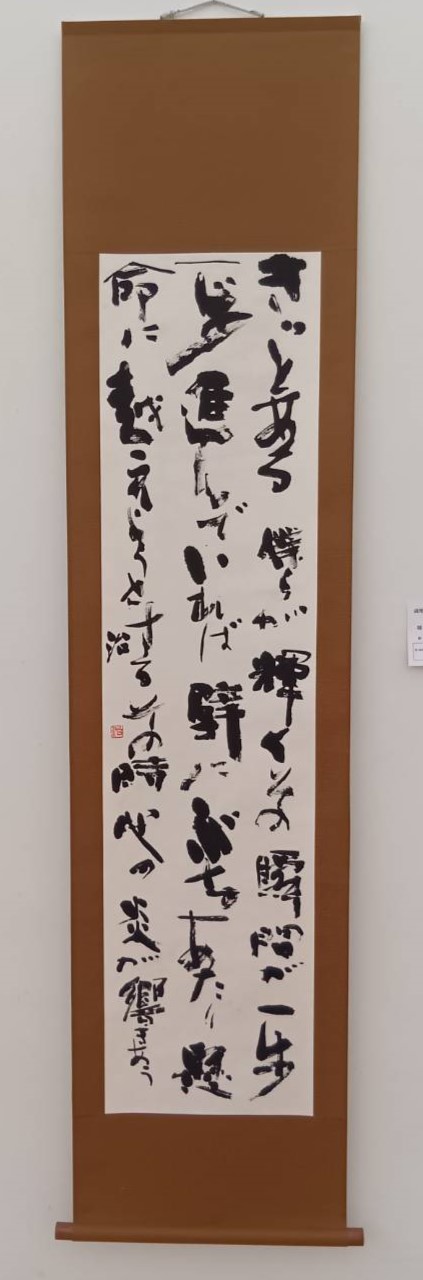 きっとある僕らが輝くその瞬間が一歩
一歩進んでいれば壁にぶちあたり懸
命に越えようとするその時代の炎が響きあう
治